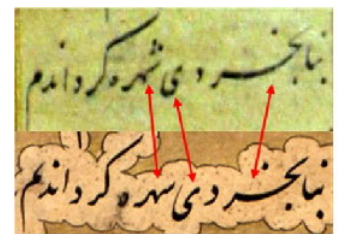 بنابخردی شهره کرداندم
بنابخردی شهره کرداندم